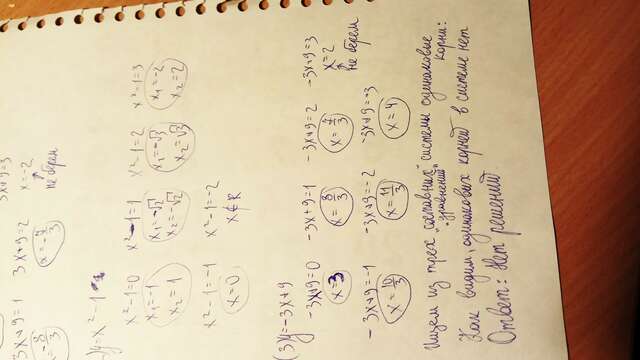 3x+9=1 3x+9=2 3x+9=3
x=-8/3 x=-7/3 x=-2
не берем
)y=x²-1
x²-1=0 x²-1=1 x²-1=2 x²-1=3
x₁=-1 x₁=√2 x₁=-√3 x₁=-2
x₂=1 x₂=-√2 x₂=√3 x₂=2
x²-1=-1 x²-1=-2
x=0 x∉R
(3)y=-3x+9
-3x+9=0 -3x+9=1 -3x+9=2 -3x+9=3
x=3 x=8/3 x=7/3 x=2
не берем
-3x+9=-1 -3x+9=-2 -3x+9=-3
x=10/3 x=11/3 x=4
Ищем из трех "составных" системы одинаковые
"уравнений" корни:
Как видим, одинаковых корней в системе нет
Ответ: Нет решений